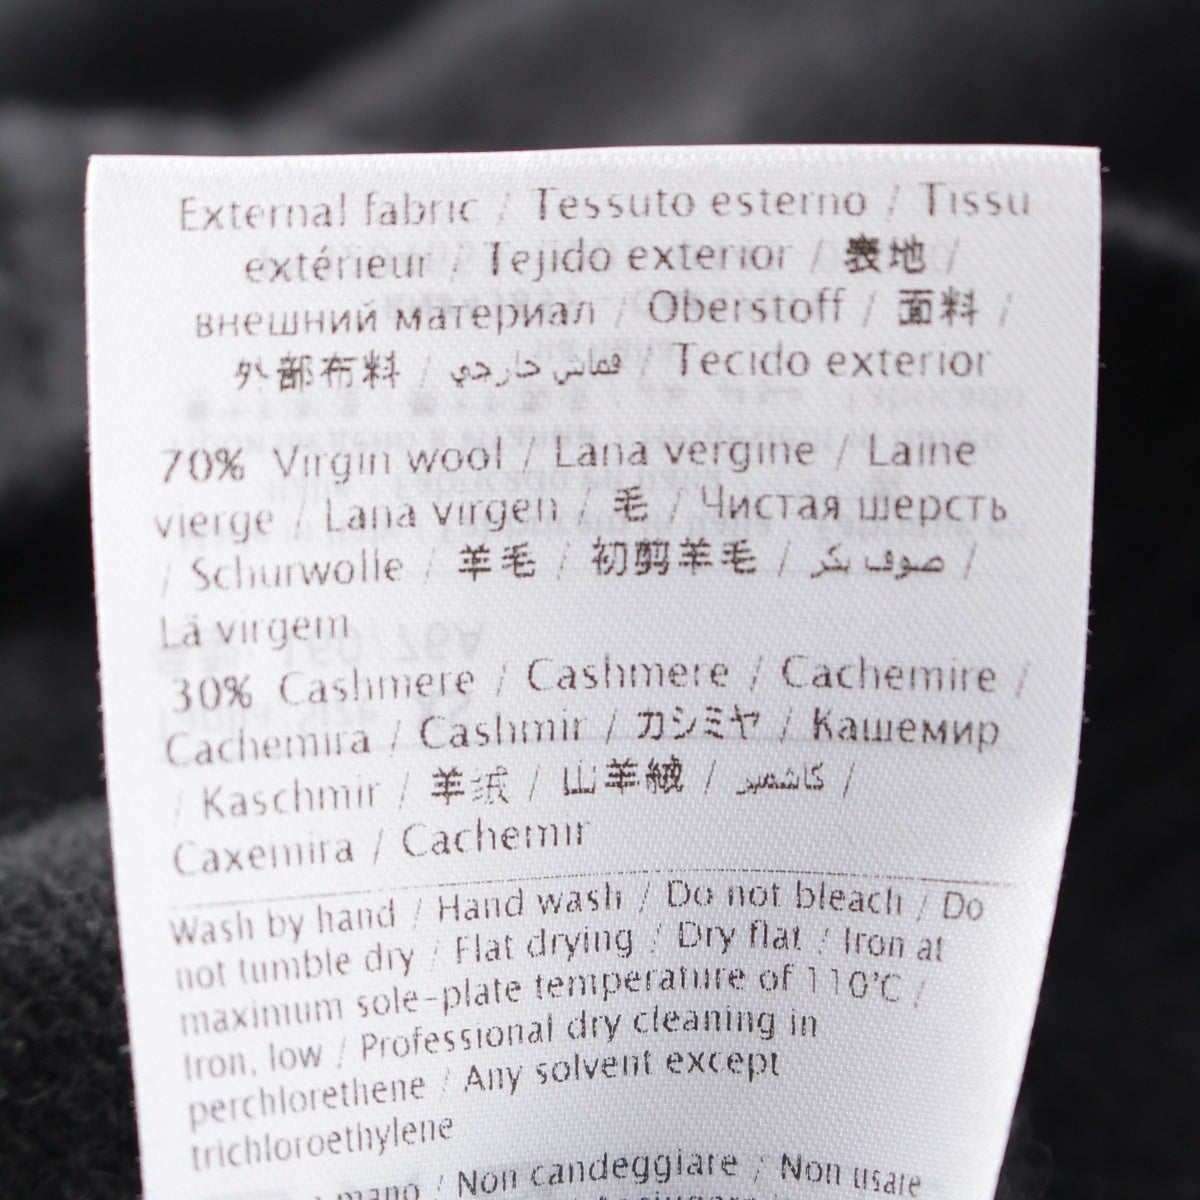 External fabric / Tessuto esterno / Tissu
extérieur / Tejido exterior / 表地 /
внешний материал / Oberstoff / 面料 /
外部布料 / قماش خارجي / Tecido exterior
70% Virgin wool / Lana vergine / Laine
vierge / Lana virgen / 毛 / Чистая шерсть
/ Schurwolle / 羊毛 / 初剪羊毛 / صوف بكر /
Lã virgem
30% Cashmere / Cashmere / Cachemire /
Cachemira / Cashmir / カシミヤ / Кашемир
/ Kaschmir / 羊绒 / 山羊絨 / كاشمير /
Caxemira / Cachemir
Wash by hand / Hand wash / Do not bleach / Do
not tumble dry / Flat drying / Dry flat / Iron at
maximum sole-plate temperature of 110°C /
Iron, low / Professional dry cleaning in
perchlorethene / Any solvent except
trichloroethylene
mano / Non candeggiare / Non usare